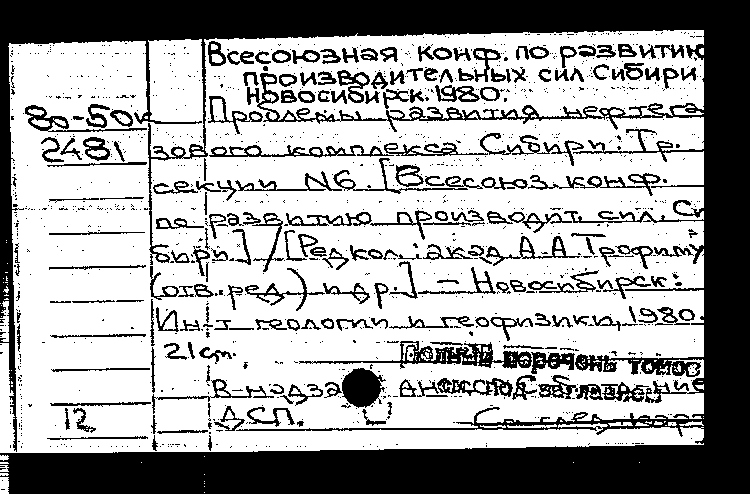 Всесоюзная конф. по развитию
производительных сил Сибири.
Новосибирск. 1980.
80-50к Проблемы развития нефтега
2481 зового комплекса Сибири: Тр.
секции N6. [Всесоюз. конф.
по развитию производит. сил. Си
бири] / [Редкол.: акад. А.А Трофиму
(отв. ред.) и др.] — Новосибирск:
Ин-т геологии и геофизики, 1980.
21 см.
Полный перечень томов
В-надзаг
см. под заглавием
12 ДСП.
См. след. карт